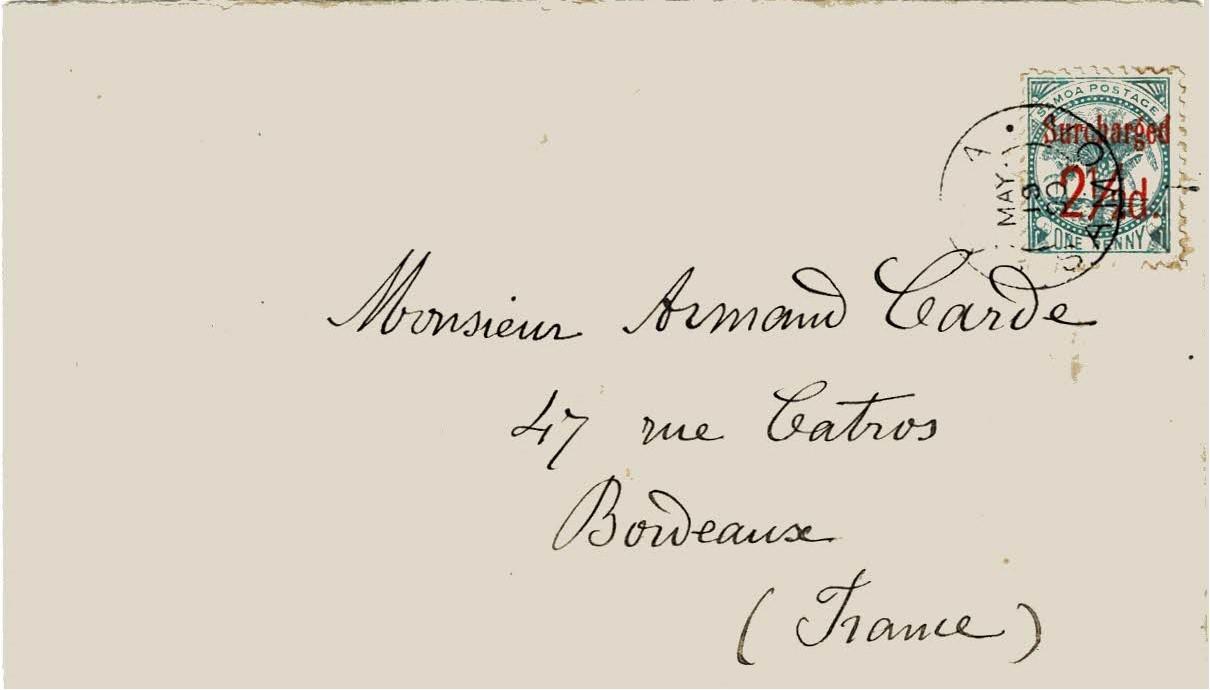 SAMOA POSTAGE
Surcharged
2½d.
ONE PENNY
MAY.
Monsieur Armand Carde
47 rue Catros
Bordeaux
(France)